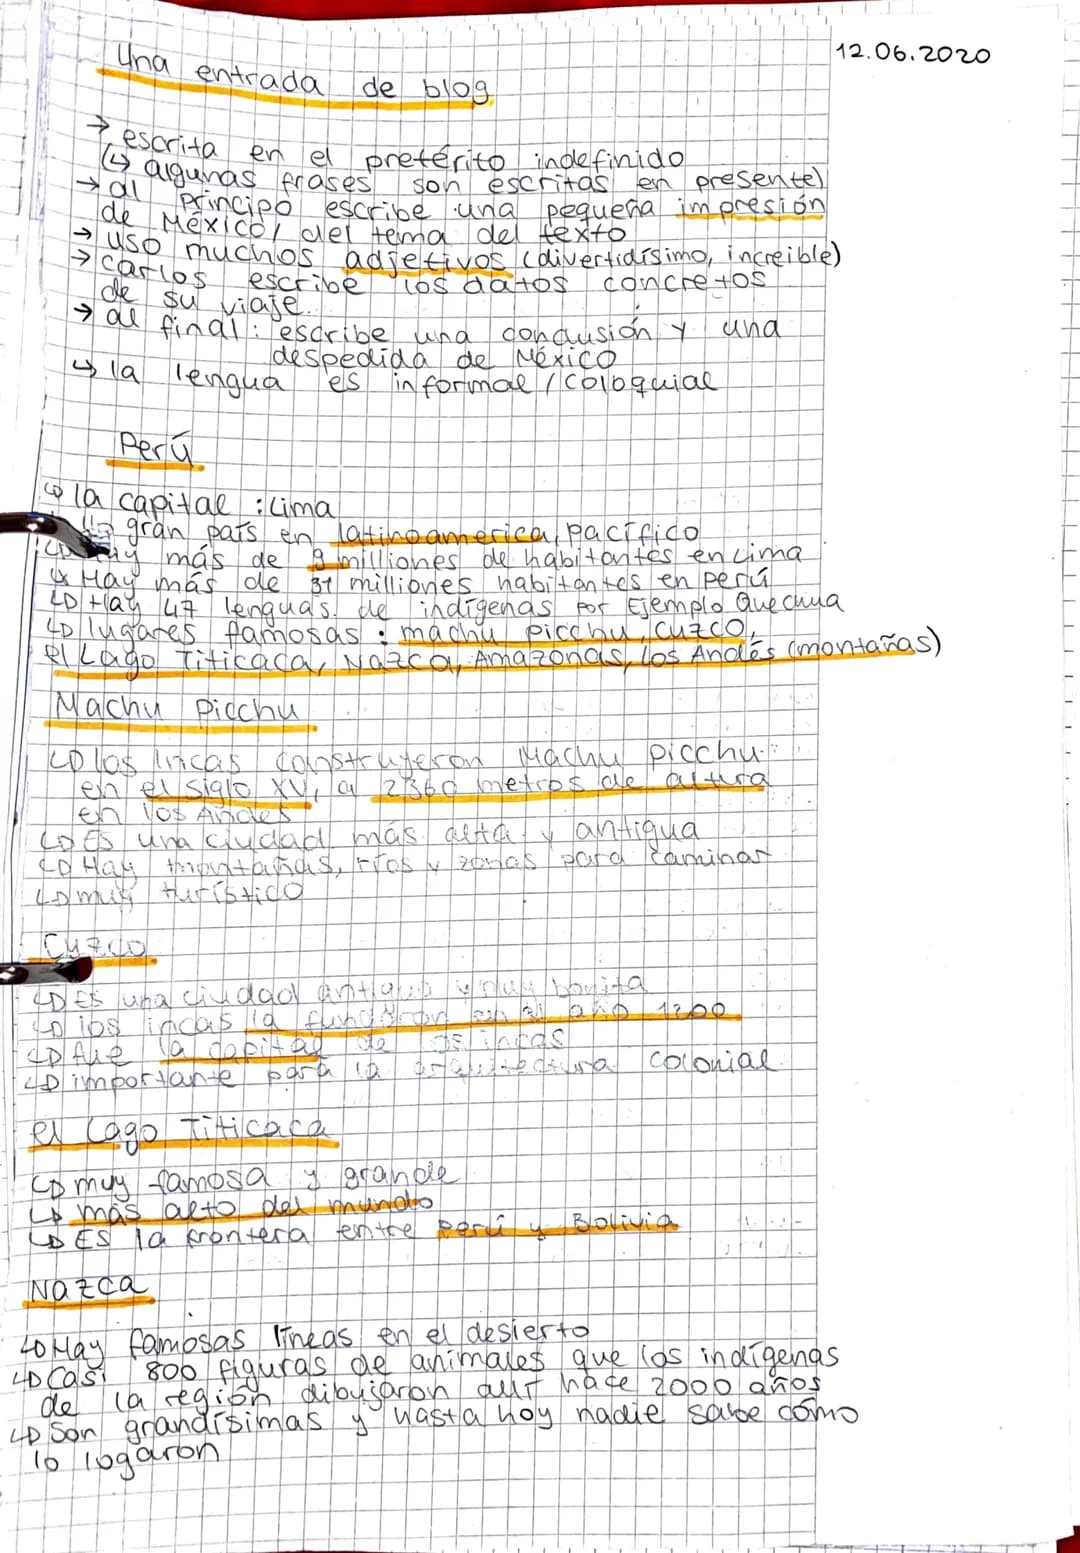 12.06.2020
Una entrada de blog
→ escrita en el pretérito indefinido
(↳ algunas frases son escritas en presente)
→ al principo escribe una pequeña impresión
de México, del tema del texto
→ uso muchos adjetivos (divertidísimo, increible)
→ Carlos escribe los datos concretos
de su viaje.
→ al final: escribe una conclusión y una
despedida de México
↳ la lengua es informal / coloquial
Perú
↳ la capital : Lima
gran país en latinoamerica, pacífico
↳ Hay más de 9 milliones de habitantes en Lima
↳ Hay más de 31 milliones habitantes en perú
↳ Hay 47 lenguas de indígenas por Ejemplo Quechua
↳ lugares famosas : machu picchu, Cuzco,
el Lago Titicaca, Nazca, Amazonas, los Andes (montañas)
Machu picchu
↳ los Incas construyeron Machu picchu
en el siglo XV, a 2360 metros de altura
en los Andes
↳ Es una ciudad más alta y antigua
↳ Hay montañas, ríos y zonas para caminar
↳ muy turístico
Cuzco
↳ Es una ciudad antigua y muy bonita
↳ los incas la fundaron en el año 1200
↳ fue la capital de los incas
↳ importante para la arquitectura colonial.
el Lago Titicaca
↳ muy famosa y grande
↳ más alto del mundo
↳ Es la frontera entre perú y Bolivia
Nazca
↳ Hay famosas líneas en el desierto
↳ Casi 800 figuras de animales que los indígenas
de la región dibujaron allí hace 2000 años
↳ Son grandísimas y hasta hoy nadie sabe cómo
lo lograron